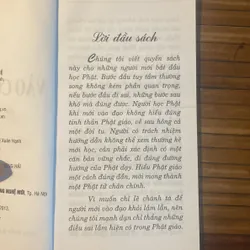 Lời đầu sách
Chúng tôi viết quyển sách
này cho những người mới bắt đầu
học Phật. Bước đầu tuy tầm thường
song không kém phần quan trọng,
nếu bước đầu đi sai, những bước sau
khó mà đúng được. Người học Phật
khi mới vào đạo không hiểu đúng
tinh thần Phật giáo, về sau sẽ hỏng
cả một đời tu. Người có trách nhiệm
hướng dẫn không thể xem thường kẻ
mới học, cần phải xác định có một
căn bản vững chắc, đi đúng đường
hướng của Phật dạy. Hiểu Phật giáo
một cách đúng đắn, mới mong thành
một Phật tử chân chính.
Vì muốn chỉ lẽ chánh tà để
người mới vào đạo khỏi lầm lẫn, nên
chúng tôi mạnh dạn chỉ thẳng những
điều sai lầm hiện có trong Phật giáo.
VÀO C
NGHỆ MỚI, Tp. Hà Nội
2013,